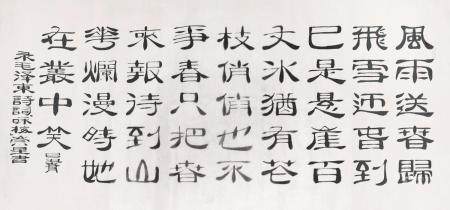 風雨送春歸
飛雪迎春到
已是悬崖百
丈冰猶有花
枝俏俏也不
爭春只把春
來報待到山
花爛漫時她
在叢中笑
录毛泽東詩詞咏梅